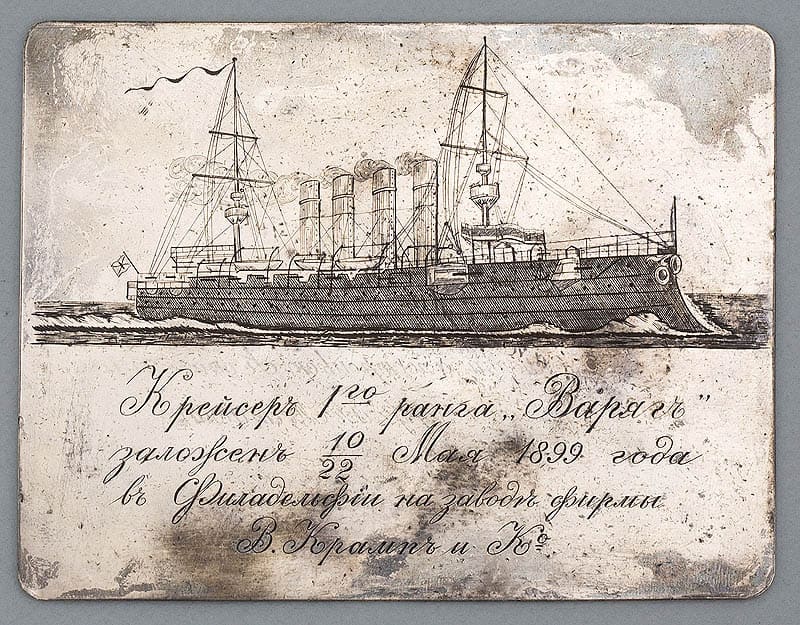 Крейсеръ 1го ранга „Варягъ”
заложенъ 10/22 Мая 1899 года
въ Филадельфіи на заводѣ фирмы
В. Крампъ и Кº